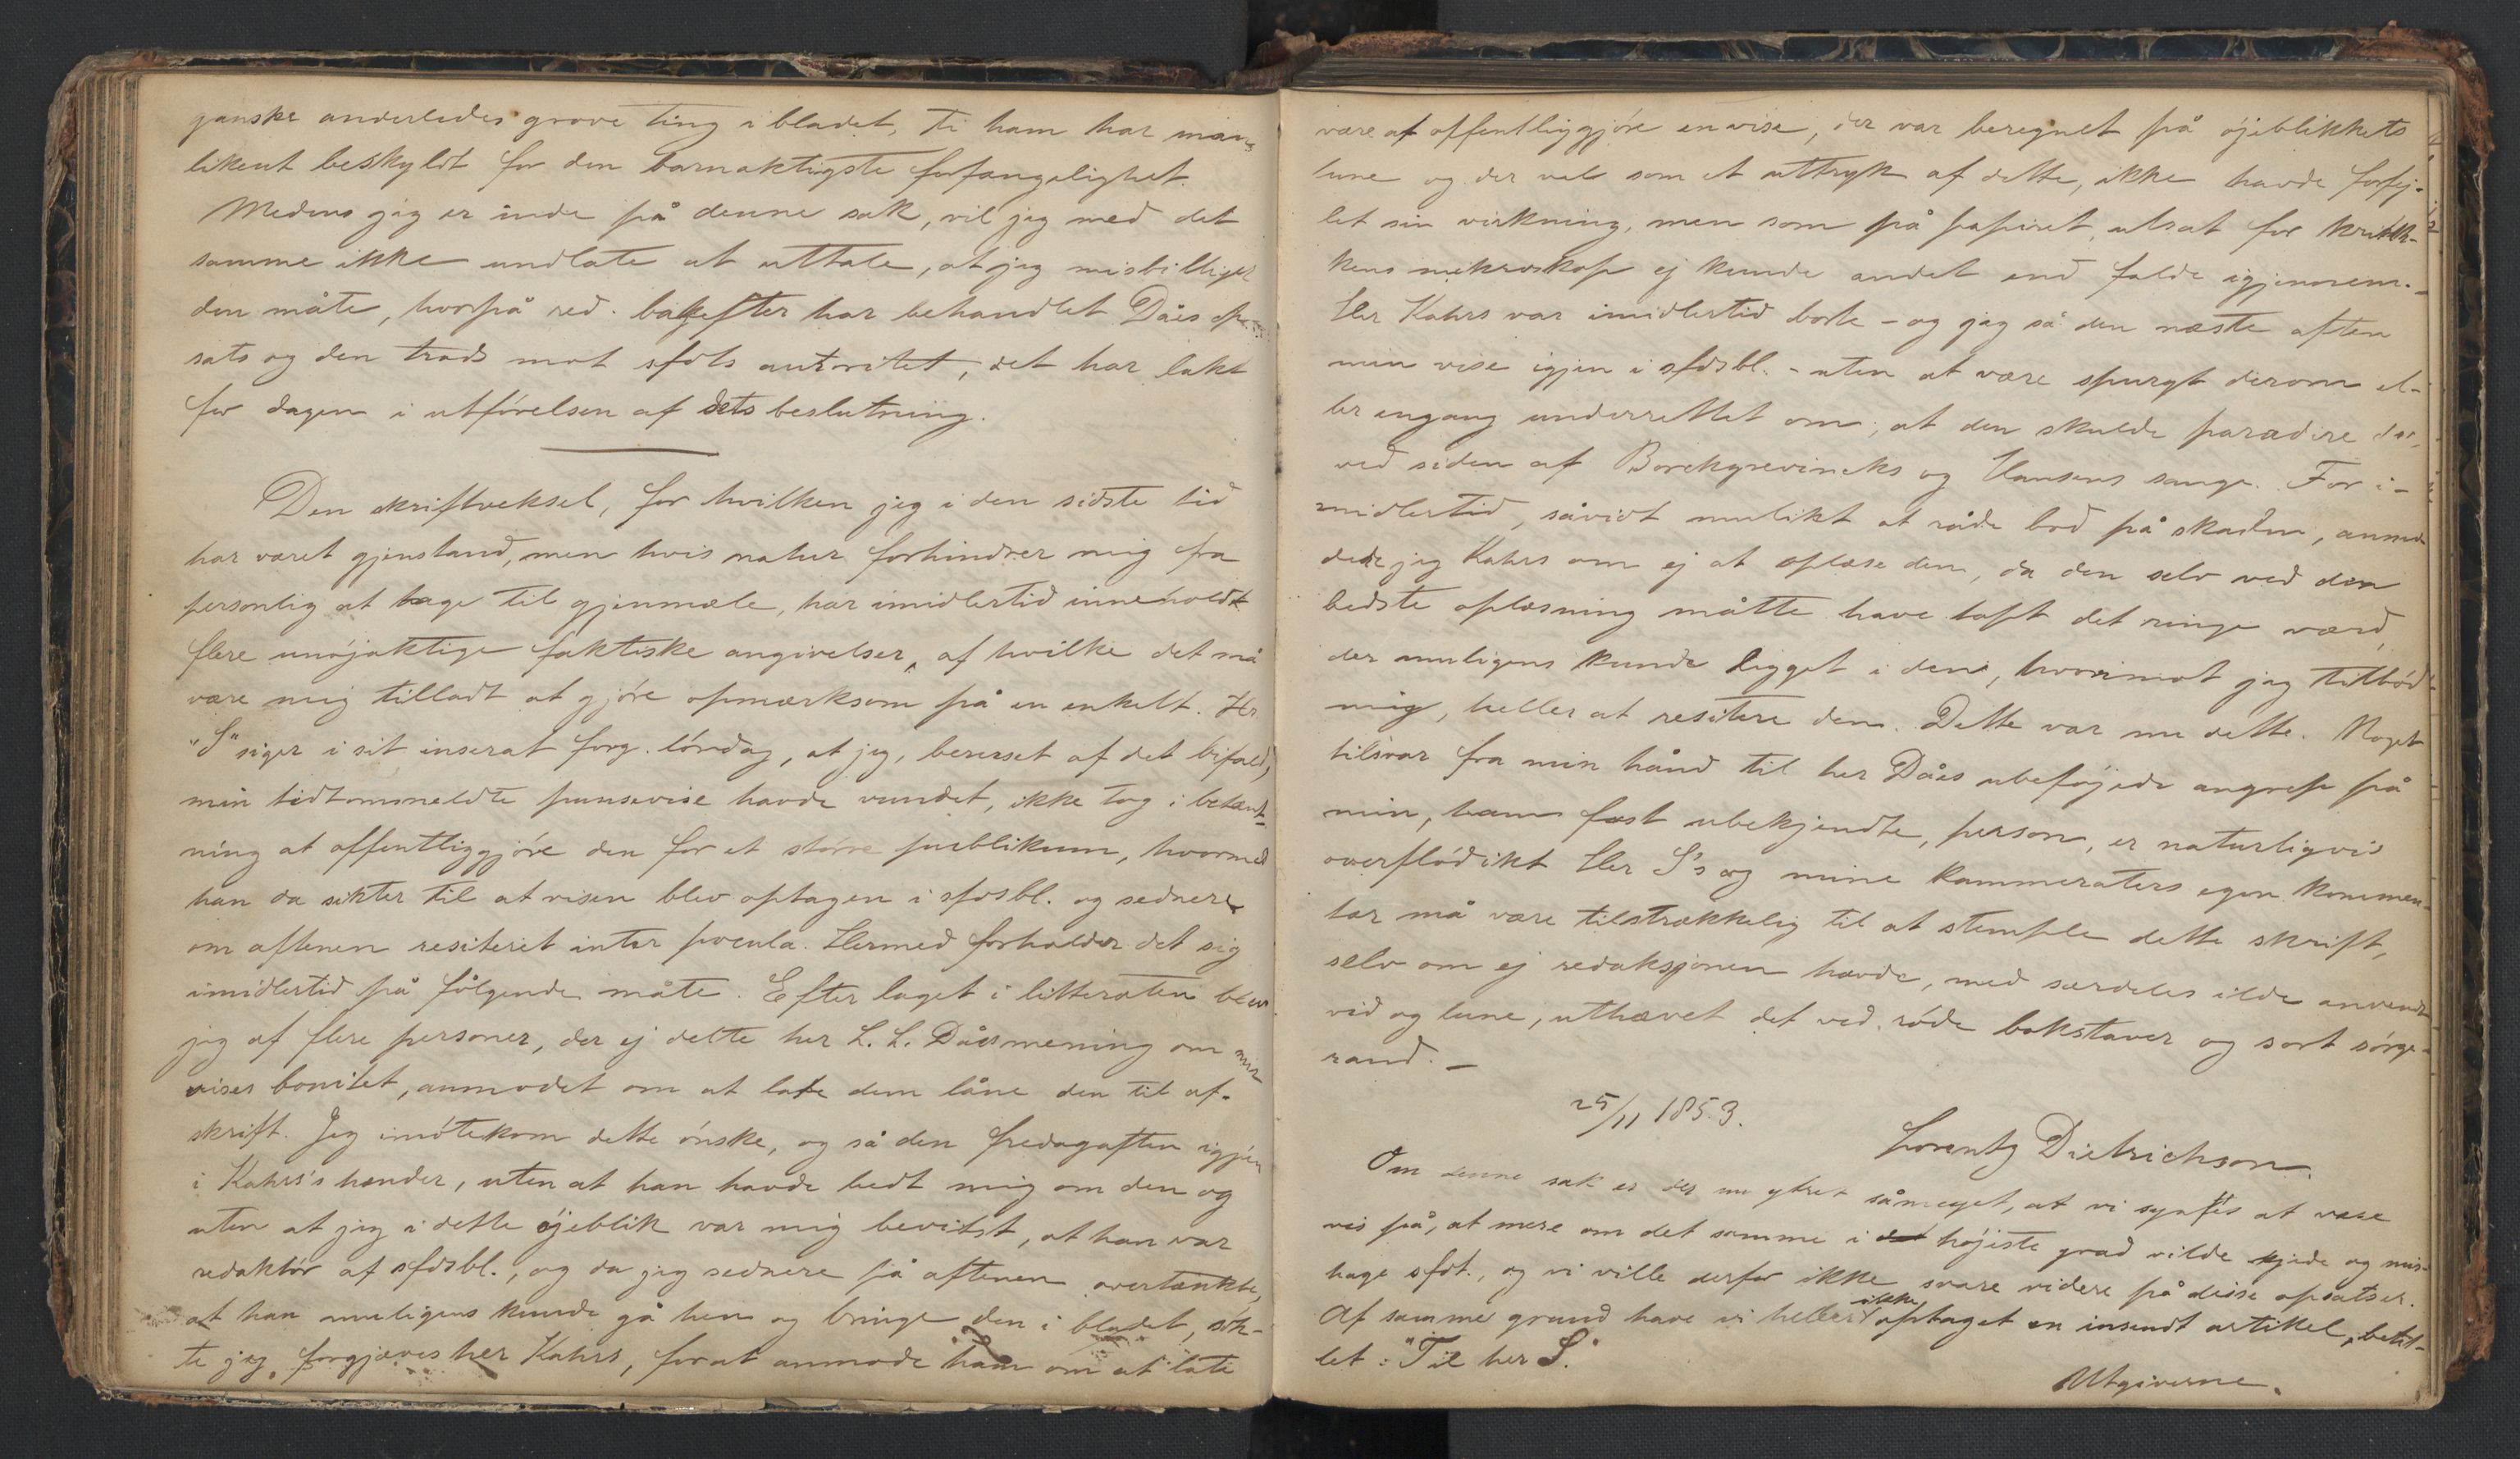 ganske anderledes grove ting i bladet, ti ham har man
likeut beskyldt for den barnaktigste forfængelighet.
Medens jeg er inde på denne sak, vil jeg med det
samme ikke undlate at uttale, at jeg misbilliger
den måte, hvorpå red. bakefter har behandlet Dåes op-
sats og den trods mot sfdts autoritet, det har lakt
for dagen i utførelsen af dets beslutning.
Den skriftveksel, for hvilken jeg i den sidste tid
har været gjenstand, men hvis natur forhindrer mig fra
personlig at tage til gjenmæle, har imidlertid inneholdt
flere unøjaktige faktiske angivelser, af hvilke det må
være mig tilladt at gjøre opmærksom på en enkelt. Hr
"S" siger i sit inserat forg. lørdag, at jeg, beruset af det bifald,
min tidtommeldte punsevise havde vundet, ikke tog i betænk-
ning at offentliggjøre den for et større publikum, hvormed
han da sikter til at visen blev optagen i sfdsbl. og sednere
om aftenen resiteret inter pocula. Hermed forholder det sig
imidlertid på følgende måte. Efter laget i litteraten blev
jeg af flere personer, der ej delte her L. L. Dåes mening om min
vises bonitet, anmodet om at late dem låne den til af-
skrift. Jeg imøtekom dette ønske, og så den fredagaften igjen
i Kahrs's hænder, uten at han havde bedt mig om den og
uten at jeg i dette øjeblik var mig bevitst, at han var
redaktør af sfdsbl., og da jeg sednere på aftenen overtænkte,
at han muligens kunde gå hen og bringe den i bladet, søk-
te jeg forgjæves her Kahrs, for at anmode ham om at late
være at offentliggjøre en vise, der var beregnet på øjeblikkets
lune og der vel som et uttryk af dette, ikke havde forfej-
let sin virkning, men som på papiret, utsat for kritik-
kens mikroskop ej kunde andet end falde igjennem. –
Her Kahrs var imidlertid borte – og jeg så den næste aften
min vise igjen i sfdsbl. – uten at være spurgt derom el-
ler engang underrettet om, at den skulde paradere der,
ved siden af Borchgrevincks og Hansens sange. For i-
midlertid, såvidt mulikt at råde bod på skaden, anmo-
dede jeg Kahrs om ej at oplæse den, da den selv ved den
bedste oplæsning måtte have tapt det ringe værd,
der muligens kunde ligget i den, hvorimot jeg tilbød
mig, heller at resitere den. Dette var nu dette. Noget
tilsvar fra min hånd til her Dåes ubeføjede angrep på
min, ham fast ubekjendte, person, er naturligvis
overflødikt Her S's og mine kammeraters egen kommen-
tar må være tilstrækkelig til at stemple dette skrift,
selv om ej redaksjonen havde, med særdeles ilde anvendt
vid og lune, uthævet det ved røde bokstaver og sort sørge-
rand. –
25/11 1853.
Lorentz Dietrichson.
Om denne sak er der nu ytret såmeget, at vi synes at være
vis på, at mere om det samme i højeste grad vilde kjede og mis-
hage sfdt., og vi ville derfor ikke svare videre på disse opsatser.
Af samme grund have vi heller ikke optaget en insendt artikel, betit-
let: "Til her S."
Utgiverne.